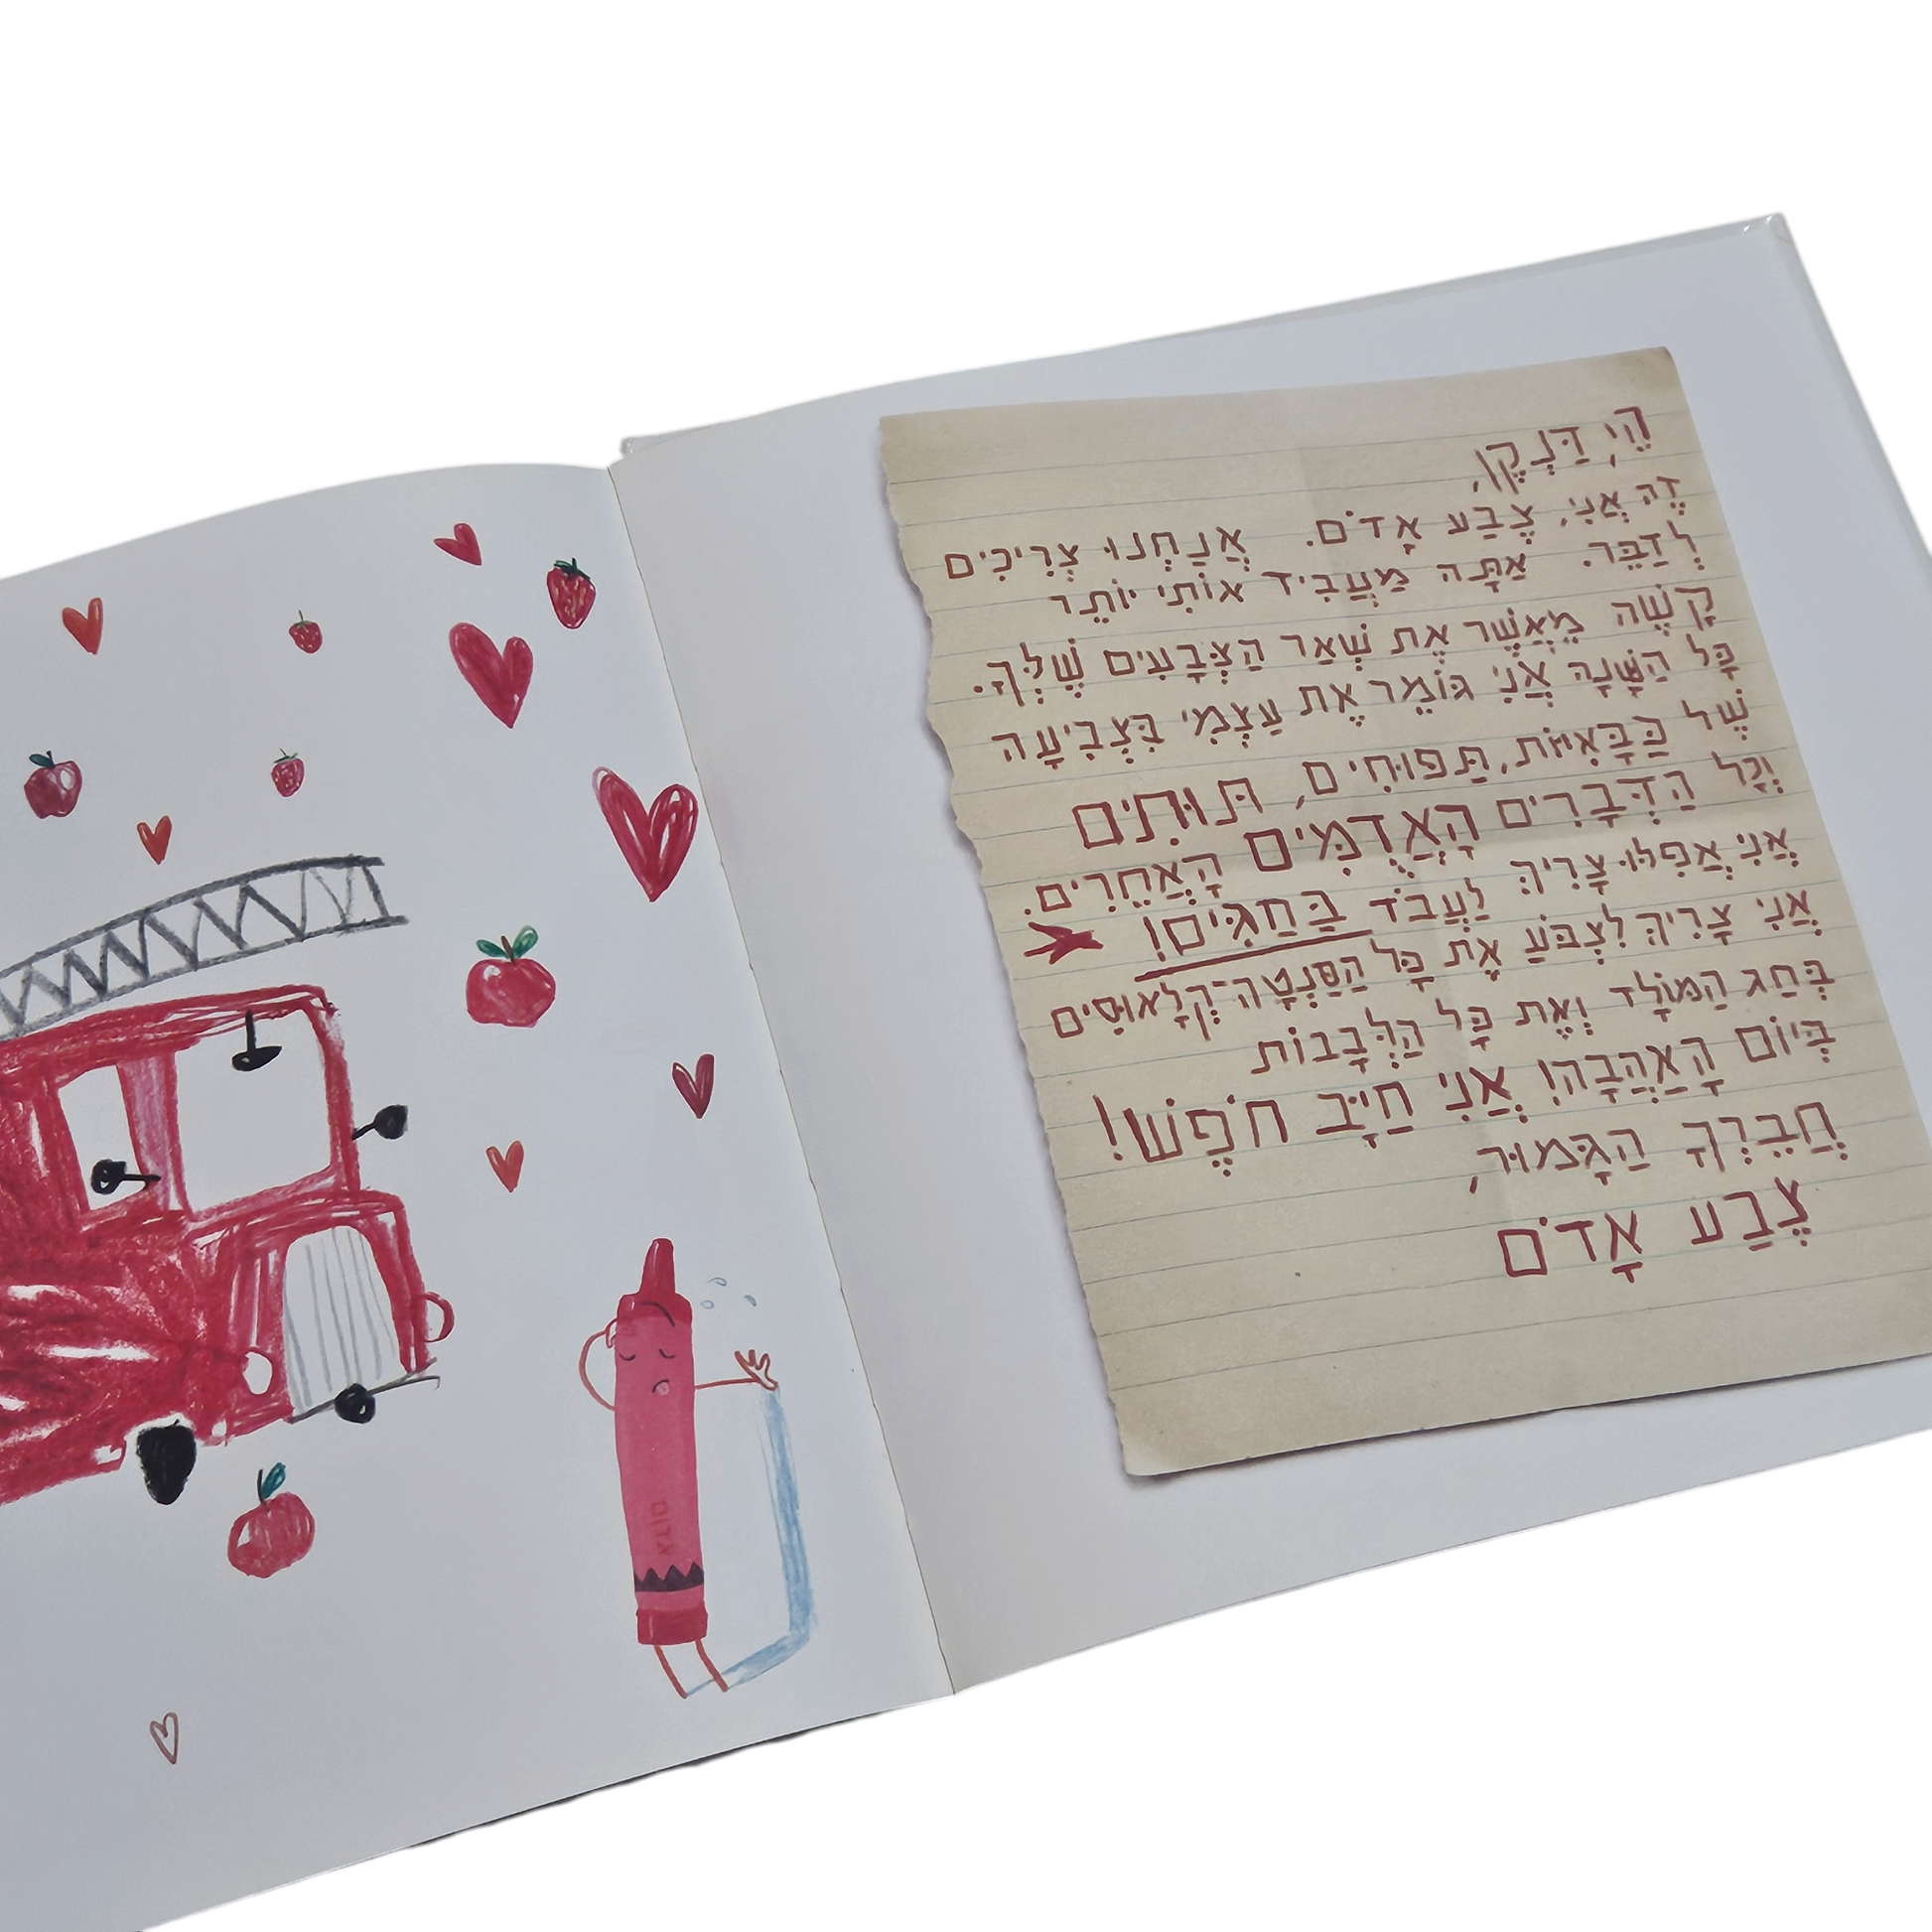 הֵי, דַּנְקָן,
זֶה אֲנִי, צֶבַע אָדֹם. אֲנַחְנוּ צְרִיכִים
לְדַבֵּר. אַתָּה מַעֲבִיד אוֹתִי יוֹתֵר
קָשֶׁה מֵאֲשֶׁר אֶת שְׁאַר הַצְּבָעִים שֶׁלְּךָ.
כָּל הַשָּׁנָה אֲנִי גּוֹמֵר אֶת עַצְמִי בִּצְבִיעָה
שֶׁל כַּבָּאִיּוֹת, תַּפּוּחִים, תּוּתִים
וְכָל הַדְּבָרִים הָאֲדֻמִּים הָאֲחֵרִים.
אֲנִי אֲפִלּוּ צָרִיךְ לַעֲבֹד בַּחַגִּים!
אֲנִי צָרִיךְ לִצְבֹּעַ אֶת כָּל הַסַּנְטָה־קְלָאוּסִים
בְּחַג הַמּוֹלָד וְאֶת כָּל הַלְּבָבוֹת
בְּיוֹם הָאַהֲבָה! אֲנִי חַיָּב חֹפֶשׁ!
חֲבֵרְךָ הַגָּמוּר,
צֶבַע אָדֹם